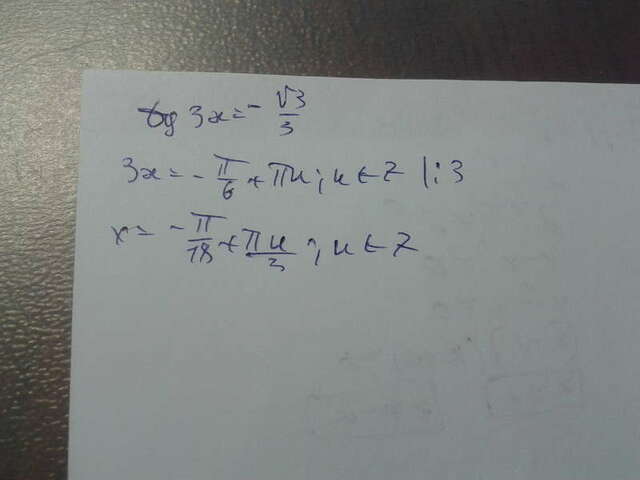 tg 3x = - √3/3
3x = - π/6 + πn; n ∈ Z |:3
x = - π/18 + πn/3; n ∈ Z